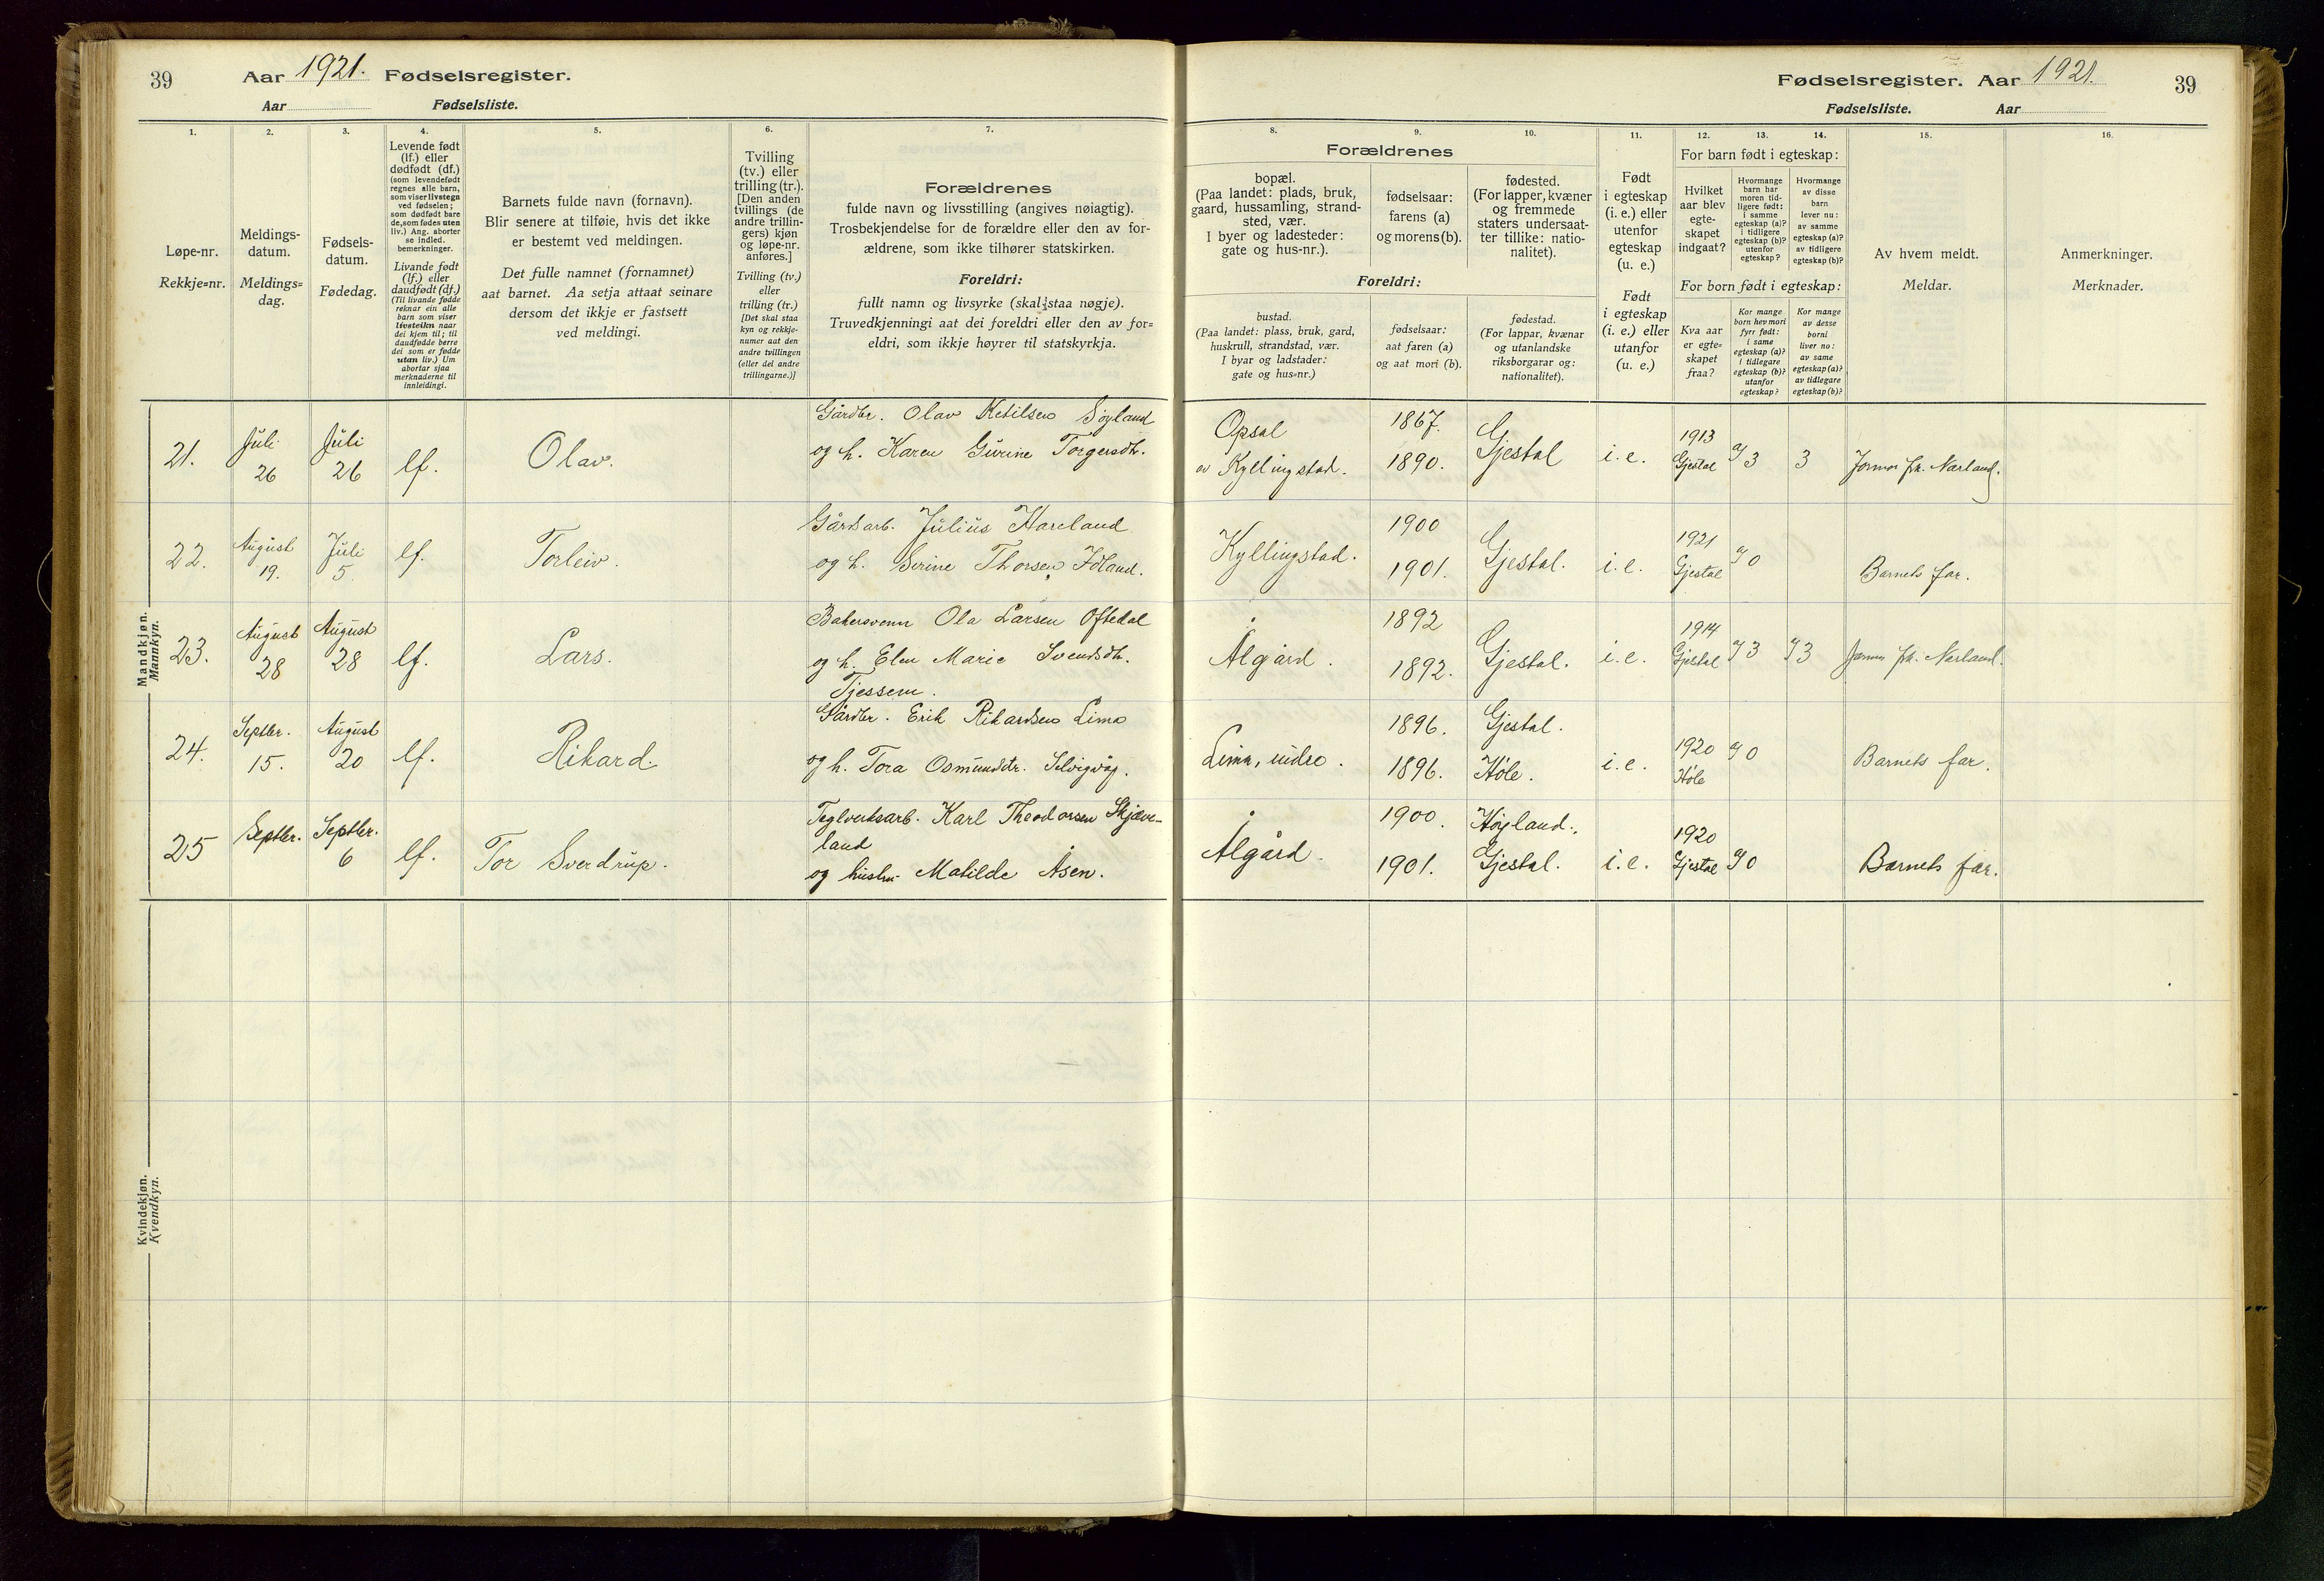 39
Aar 1921. Fødselsregister.
Aar Fødselsliste.
Fødselsregister. Aar 1921.
39
Fødselsliste. Aar
1.
Løpe-nr.
Rekkje=nr.
2.
Meldings-
datum.
Meldings=
dag.
3.
Fødsels-
datum.
Fødedag.
4.
Levende født
(lf.) eller
dødfødt (df.)
(som levendefødt
regnes alle barn,
som viser livstegn
ved fødselen;
som dødfødt bare
de, som fødes uten
liv.) Ang. aborter
se indled.
bemerkninger.
Livande født
(lf.) eller
daudfødt (df.)
(Til livande fødde
reknar ein alle
barn som viser
livsteikn naar
dei kjem til; til
daudfødde berre
dei som er fødde
utan liv.) Um
abortar sjaa
merknaderne til
innleidingi.
5.
Barnets fulde navn (fornavn).
Blir senere at tilføie, hvis det ikke
er bestemt ved meldingen.
Det fulle namnet (fornamnet)
aat barnet. Aa setja attaat seinare
dersom det ikkje er fastsett
ved meldingi.
6.
Tvilling
(tv.) eller
trilling (tr.).
[Den anden
tvillings (de
andre trillin-
gers) kjøn
og løpe-nr.
anføres.]
Tvilling (tv.)
eller
trilling (tr.)
[Det skal staa
kyn og rekkje-
numer aat den
andre tvillingen
(eller dei andre
trillingarne.)]
7.
Forældrenes
fulde navn og livsstilling (angives nøiagtig).
Trosbekjendelse for de forældre eller den av for-
ældrene, som ikke tilhører statskirken.
Foreldri:
fullt namn og livsyrke (skal staa nøgje).
Truvedkjenningi aat dei foreldri eller den av for=
eldri, som ikkje høyrer til statskyrkja.
Forældrenes
8.
bopæl.
(Paa landet: plads, bruk,
gaard, hussamling, strand-
sted, vær.
I byer og ladesteder:
gate og hus-nr.).
9.
fødselsaar:
farens (a)
og morens (b).
10.
fødested.
(For lapper, kvæner
og fremmede
staters undersaat-
ter tillike: natio-
nalitet).
Foreldri:
bustad.
(Paa landet: plass, bruk, gard,
huskrull, strandstad, vær.
I byar og ladstader:
gate og hus=nr.)
fødselsaar:
aat faren (a)
og aat mori (b).
fødestad.
(For lappar, kvænar
og utanlandske
riksborgarar og:
nationalitet).
11.
Født
i egteskap
(i. e.) eller
utenfor
egteskap
(u. e.)
Født
i egteskap
(i. e.) eller
utanfor
(u. e.)
12. 13. 14.
For barn født i egteskap:
Hvilket
aar blev
egte-
skapet
indgaat?
Hvormange
barn har
moren tid-
ligere født:
i samme
egteskap (a)?
i tidligere
egteskap (b)?
utenfor
egteskap?
Hvormange
av disse
barn
lever nu:
av samme
egteskap (a)?
av tidligere
egteskap (b)?
For born født i egteskap:
Kva aar
er egte=
skapet
fraa?
Kor mange
born hev mori
fyrr født:
i same
egteskap (a)?
i tidlegare
egteskap (b)?
utanfor
egteskap?
Kor mange
av desse
borni
liver no:
av same
egteskap (a)?
av tidlegare
egteskap (b)?
15.
Av hvem meldt.
Meldar.
16.
Anmerkninger.
Merknader.
Mandkjøn.
Mannkyn.
21. Juli 26 Juli 26 lf. Olav.
Gårdbr. Olav Ketilsen Søyland
og h. Karen Gurine Torgersdtr.
Opsal
av Kyllingstad.
1867.
1890.
Gjestal i.e. 1913 Gjestal 3 3 Jormor fr. Nærland.
22. August 19. Juli 5. lf. Torleiv.
Gårdsarb. Julius Hareland
og h. Serine Thorsen Idland.
Kyllingstad.
1900
1901.
Gjestal. i.e. 1921 Gjestal 0 Barnets far.
23. August 28 August 28 lf. Lars.
Bakersvenn Ola Larsen Oftedal
og h. Elen Marie Svendsdtr.
Tjessem.
Ålgård.
1892
1892.
Gjestal. i.e. 1914 Gjestal 3 3 Jormor fr. Nærland.
24. Septbr. 15. August 20 lf. Rikard.
Gårdbr. Erik Rikardsen Lima
og h. Tora Osmundsdtr. Selvigvåg.
Lima, indre.
1896.
1896.
Gjestal.
Høle.
i.e. 1920 Høle 0 Barnets far.
25 Septbr. Septbr. 6 lf. Tor Sverdrup.
Teglverksarb. Karl Theodorsen Skjæve-
land
og hustru Matilde Åsen.
Ålgård.
1900.
1901.
Høyland.
Gjestal.
i.e. 1920 Gjestal 0 Barnets far.
Kvindekjøn.
Kvendkyn.